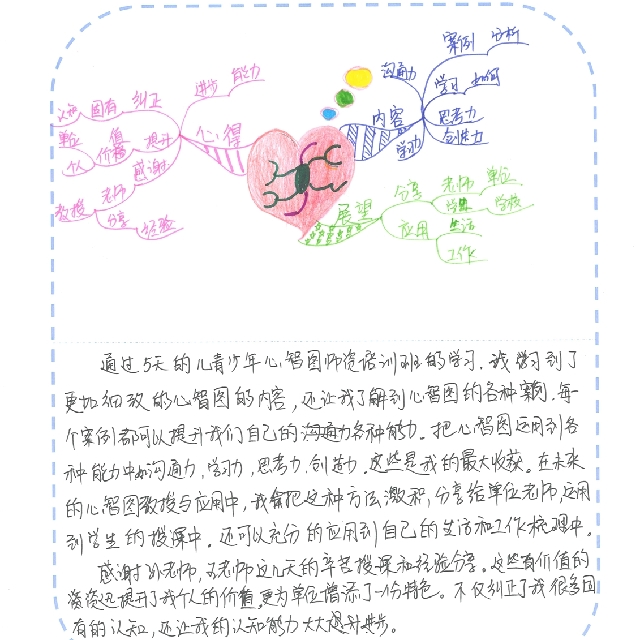 案例 分析
沟通力
学习 如何
内容
思考力
创造力
学习力
进步 能力
心得
认知 固有 纠正
单位 价值 提升
个人
感谢
老师
教授 分享 经验
展望
分享 老师 单位
学生 学校
应用 生活
工作
通过5天的儿青少年心智图师资培训班的学习,我学习到了
更加细致的心智图的内容,还让我了解到心智图的各种案例,每
个案例都可以提升我们自己的沟通力各种能力。把心智图运用到各
种能力中如沟通力,学习力,思考力,创造力。这些是我的最大收获。在未来
的心智图教授与应用中,我会把这种方法激积,分享给单位老师,运用
到学生的授课中。还可以充分的应用到自己的生活和工作梳理中。
感谢孙老师,老师这几天的辛苦授课和经验分享。这些有价值的
资资还提升了我个人的价值,更为单位增添了一份特色。不仅纠正了我很多固
有的认知,还让我的认知能力大大提升进步。